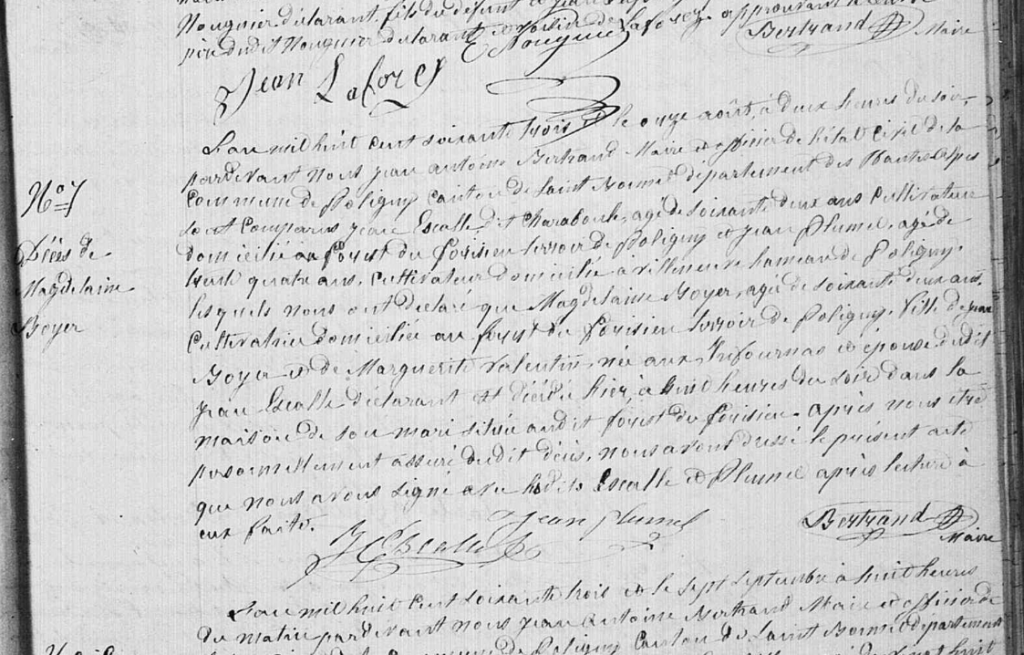 Nouguier déclarant, fils du défunt et Jean
père dudit Nouguier déclarant
Bertrand Maire
Jean Laforey
L'an mil huit cent soixante trois et le onze août, à deux heures du soir,
pardevant nous Jean antoine Bertrand Maire et officier de l'état civil de la
Commune de Poligny canton de Saint Bonnet département des Hautes alpes
sont comparus Jean Escalle dit Charaboule, agé de soixante deux ans cultivateur
domicilié au forest du forisieu terroir de Poligny et Jean Plumel, agé de
trente quatre ans, cultivateur domicilié à villeneuve hameau de Poligny.
lesquels nous ont déclaré que Magdelaine Boyer, agée de soixante deux ans,
Cultivatrice domiciliée au forest du forisieu terroir de Poligny, fille de Jean
Boyer et de Marguerite Valentin, née aux Infournas et épouse dudit
Jean Escalle déclarant est décédée hier, à huit heures du soir dans la
maison de son mari située audit forest du forisieu. après nous être
personnellement assuré dudit décès, nous avons dressé le présent acte
que nous avons signé avec lesdits Escalle et Plumel après lecture à
eux faite.
N° 7
Décès de
Magdelaine
Boyer
J Escalle
Jean plumel
Bertrand
Maire
L'an mil huit cent soixante trois et le sept septembre à huit heures
du matin pardevant nous Jean Antoine Bertrand Maire et officier de
Poligny Canton de Saint Bonnet département